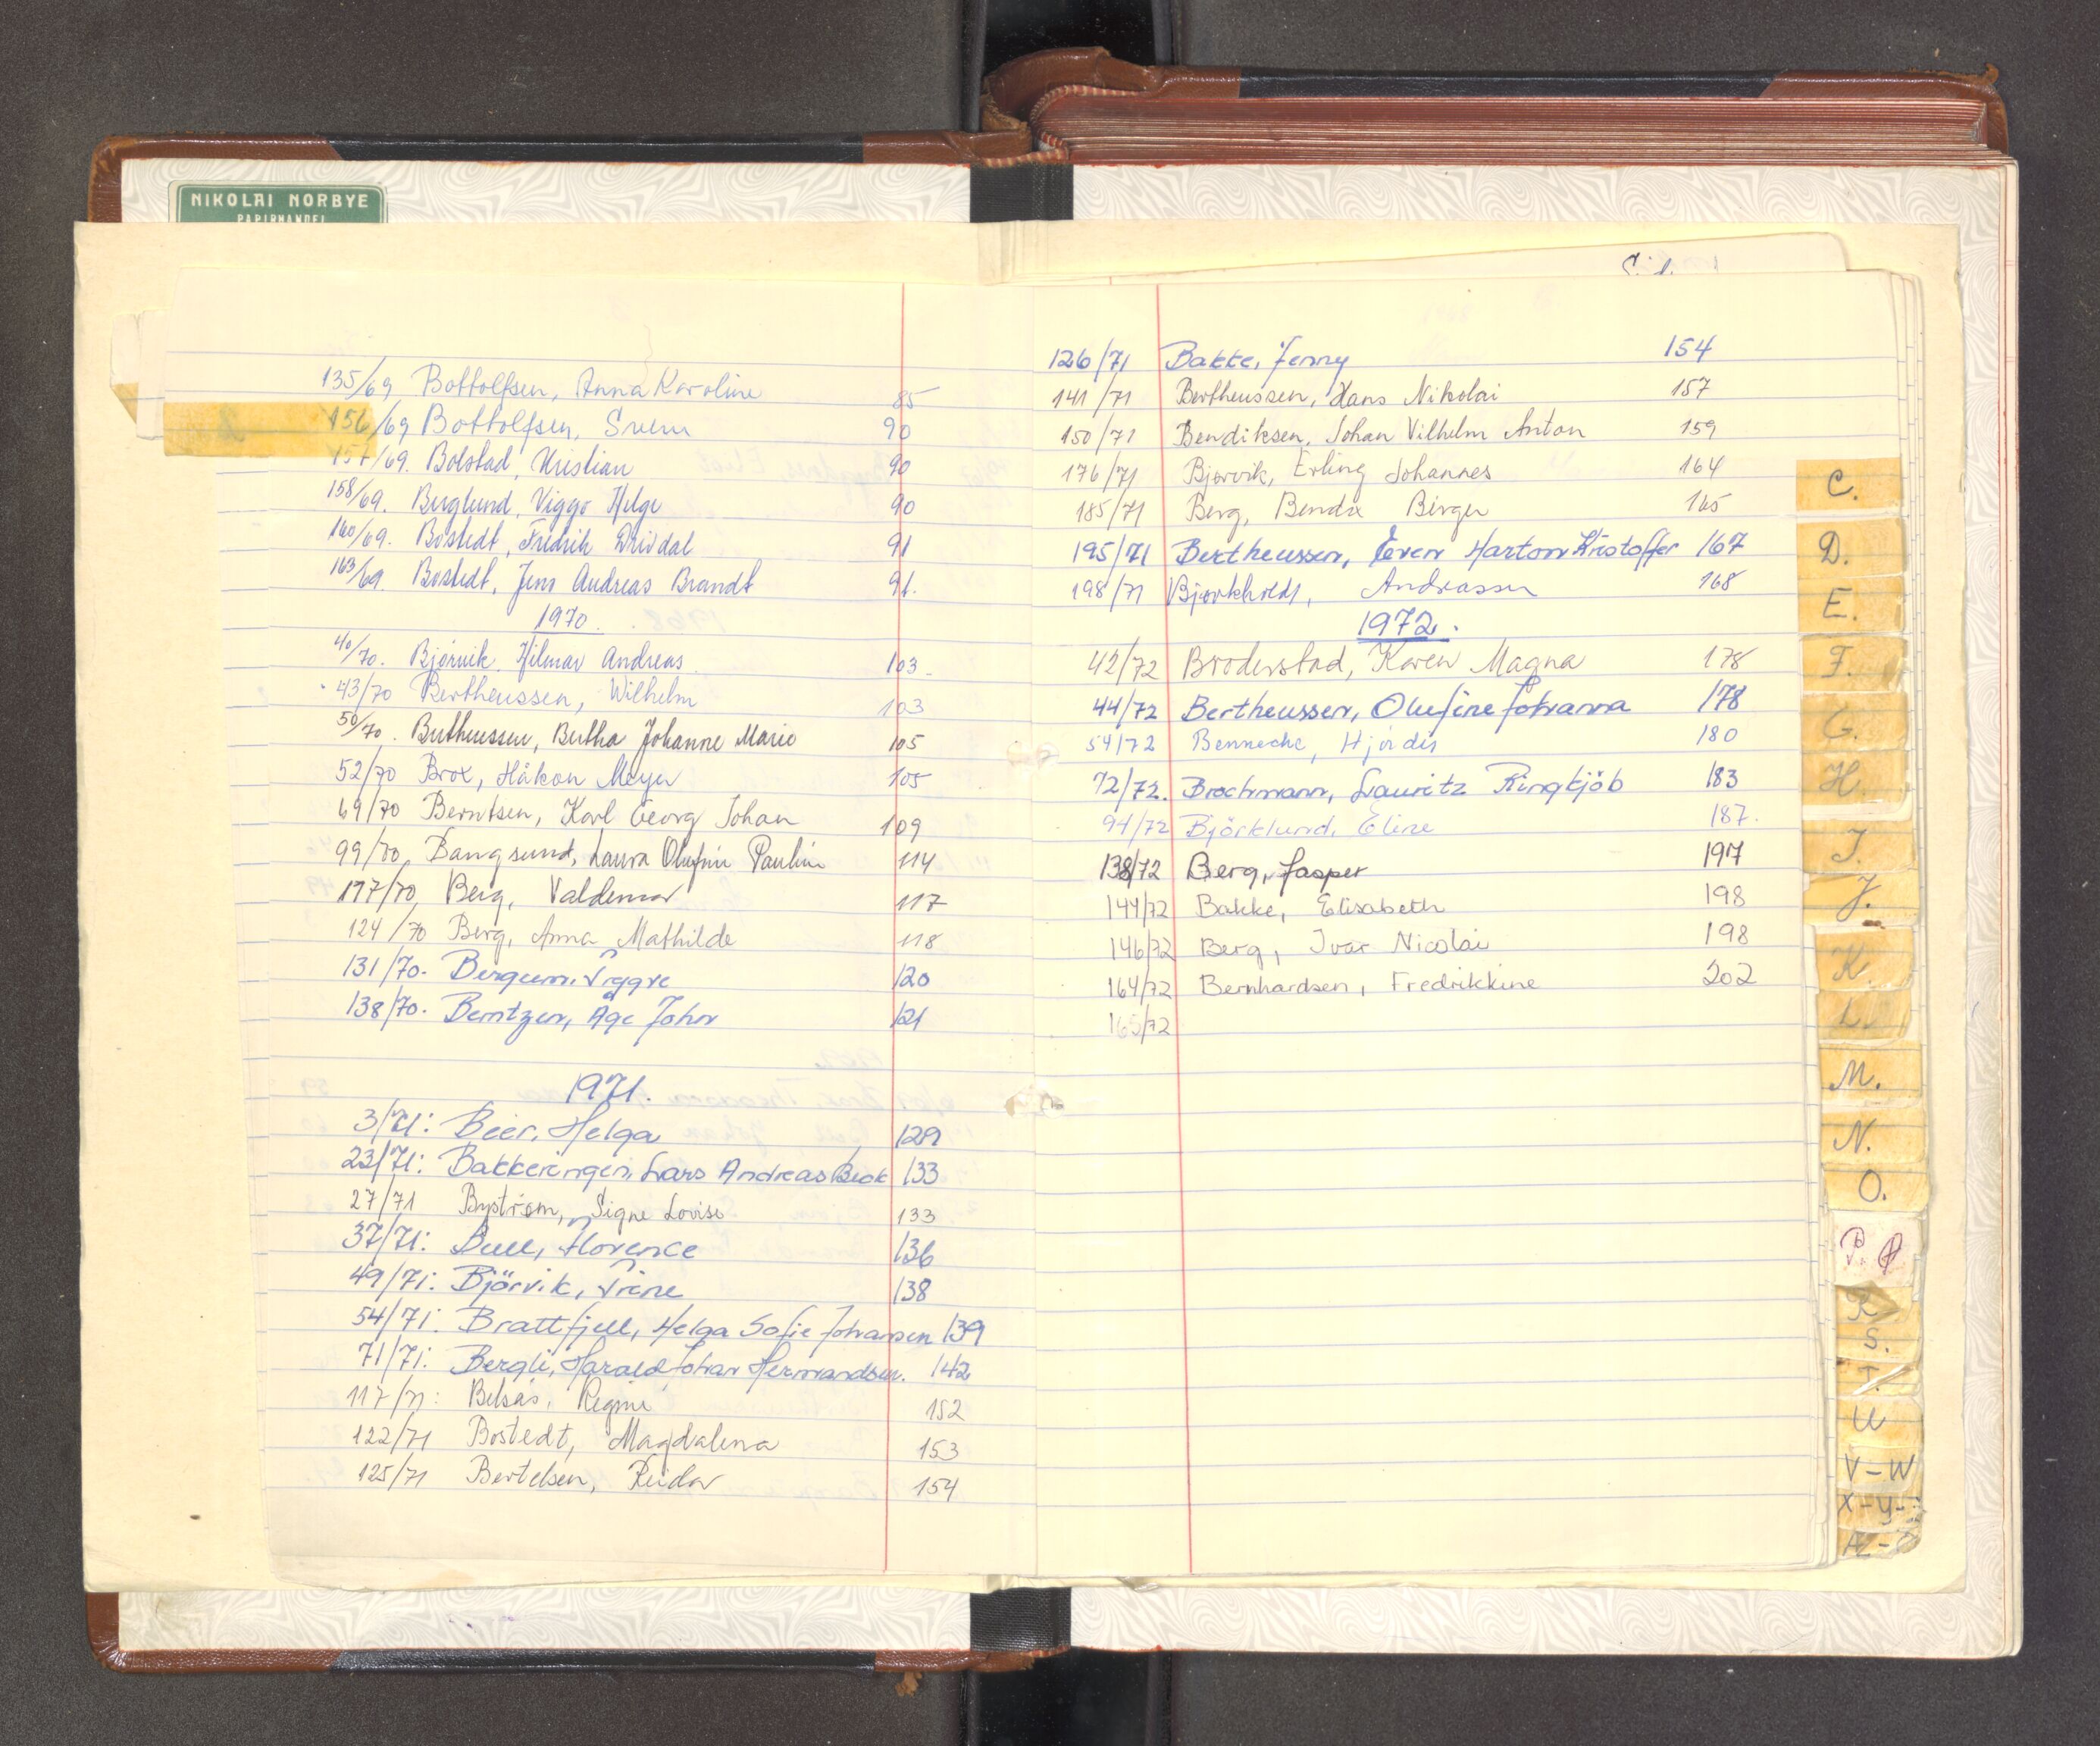 NIKOLAI NORBYE
PAPIRHANDEL
135/69 Bottolfsen, Anna Karoline 85
156/69 Bottolfsen, Svenn 90
157/69. Bolstad, Kristian 90
158/69. Berglund, Viggo Helge 90
160/69. Bostedt, Fredrik Drivdal 91
163/69. Bostedt, Jens Andreas Brandt 91.
1970.
40/70. Bjørvik, Hilmar Andreas 103
43/70 Bertheussen, Wilhelm 103
50/70. Bertheussen, Bertha Johanne Marie 105
52/70 Brox, Håkon Meyer 105
69/70 Berntsen, Karl Georg Johan 109
99/70 Bangsund, Laura Olufine Pauline 114
117/70 Berg, Valdemar 117
124/70 Berg, Anna Mathilde 118
131/70. Bergum, Tryggve 120
138/70. Berntzen, Åge John 121
1971.
3/71: Beer, Helga 129
23/71: Bakkeringen, Lars Andreas Beck 133
27/71 Byström, Signe Lovise 133
37/71: Bull, Florence 136
49/71: Björvik, Trine 138
54/71: Brattfjell, Helga Sofie Johansen 139
71/71: Bergli, Harald Johan Hermandsen. 142
117/71: Belsås, Regine 152
122/71 Bostedt, Magdalena 153
125/71 Bertelsen, Reidar 154
126/71 Bakke, Jenny 154
141/71 Bertheussen, Hans Nikolai 157
150/71 Bendiksen, Johan Vilhelm Anton 159
176/71 Bjørvik, Erling Johannes 164
185/71 Berg, Bendix Birger 165
195/71 Bertheussen, Even Marton Kristoffer 167
198/71 Bjørkholdt, Andreassen 168
1972.
42/72 Broderstad, Karen Magna 178
44/72 Bertheussen, Olufine Johanna 178
54/72 Benneche, Hjördis 180
72/72. Brochmann, Lauritz Ringkjöb 183
94/72 Björklund, Eline 187.
138/72 Berg, Jasper 197
144/72 Bakke, Elisabeth 198
146/72 Berg, Ivar Nicolai 198
164/72 Bernhardsen, Fredrikkine 202
165/72
C.
D.
E.
F.
G.
H.
I.
J.
K.
L.
M.
N.
O.
P. Q
R
S.
T.
U
V-W
X-Y-